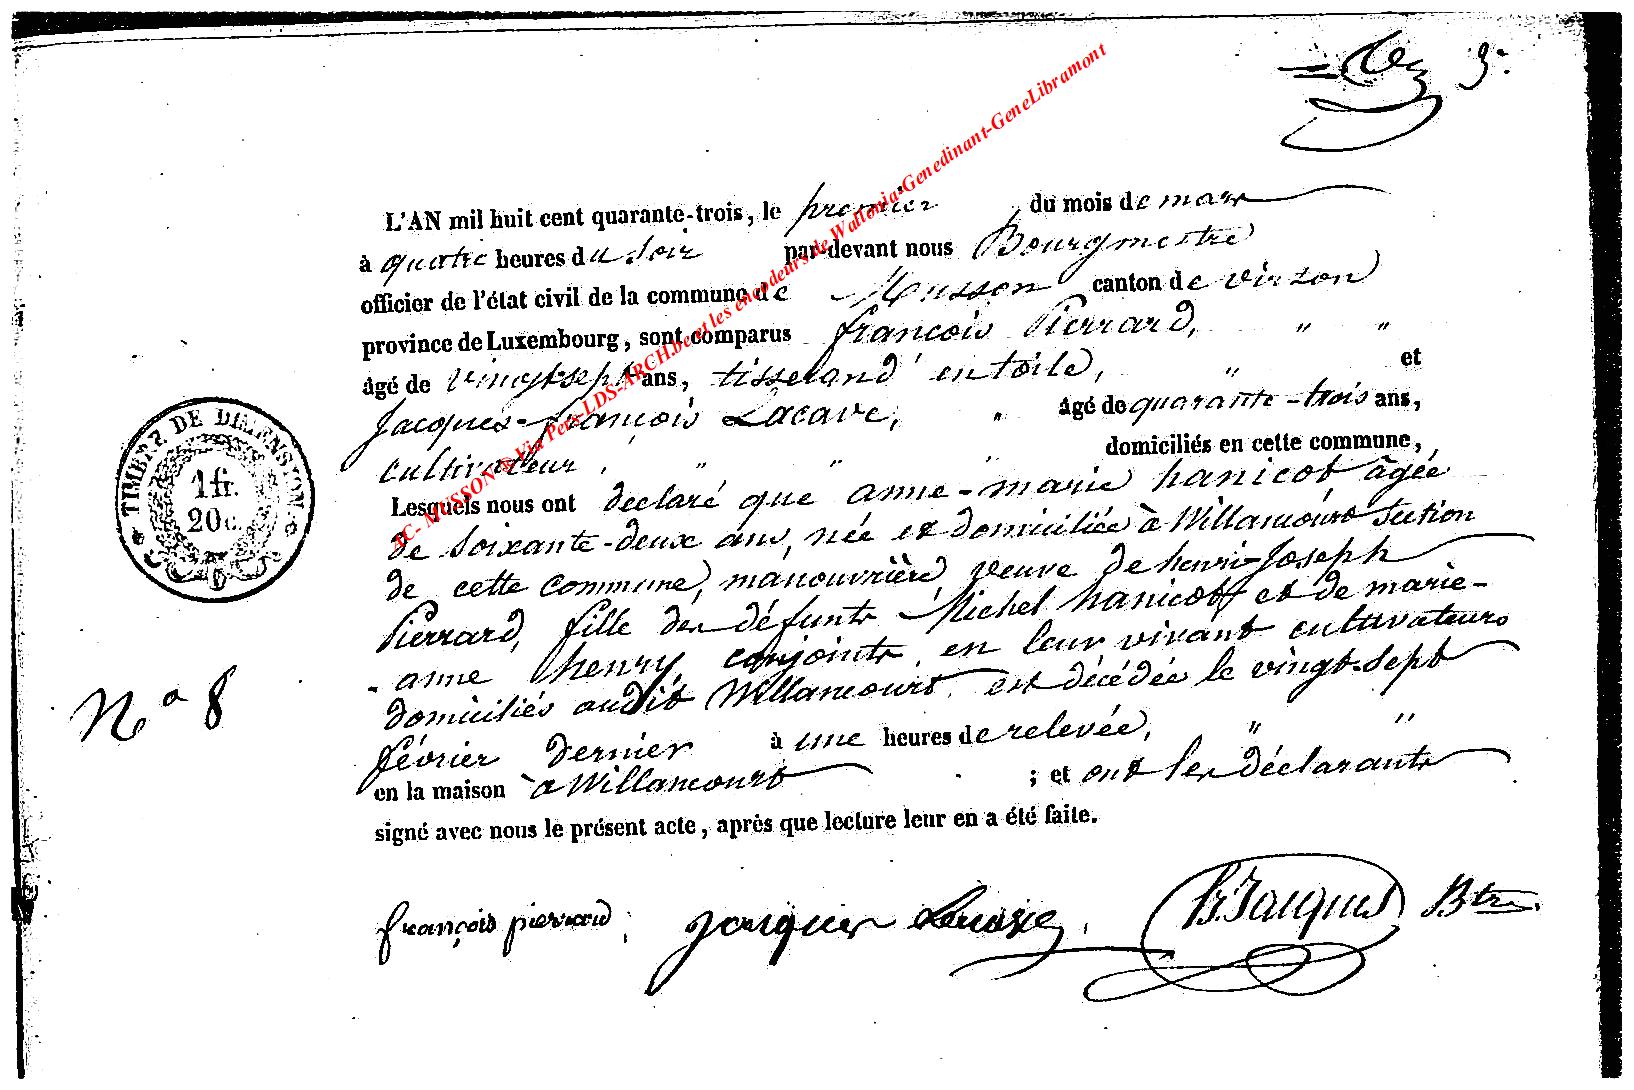 9.
L'AN mil huit cent quarante-trois, le premier du mois de mars
à quatre heures du soir par-devant nous Bourgmestre
officier de l'état civil de la commune de Musson canton de virton
province de Luxembourg, sont comparus françois Pierrard, " "
âgé de vingt-sept ans, tisserand en toile, " et
Jacques-françois Lacave, " âgé de quarante-trois ans,
cultivateur, " " " domiciliés en cette commune,
Lesquels nous ont declaré que anne-marie hanicot âgée
de soixante-deux ans, née et domiciliée à Willancourt section
de cette commune, manouvrière, veuve de henri-Joseph
Pierrard, fille des défunts Michel hanicot et de marie-
-anne henry conjoints, en leur vivant cultivateurs
domiciliés audit Willancourt, est décédée le vingt-sept
février dernier à une heures de relevée, " "
en la maison à Willancourt ; et ont les déclarants
signé avec nous le présent acte, après que lecture leur en a été faite.
françois pierrard, Jacques Lacave, Jacques Btre.
N° 8
TIMBRE DE DIMENSION
1 fr.
20 c.
AC- MUSSON © Via Pers-LDS-ARCH.be et les encodeurs de Wallonia-Genedinant-GeneLibramont